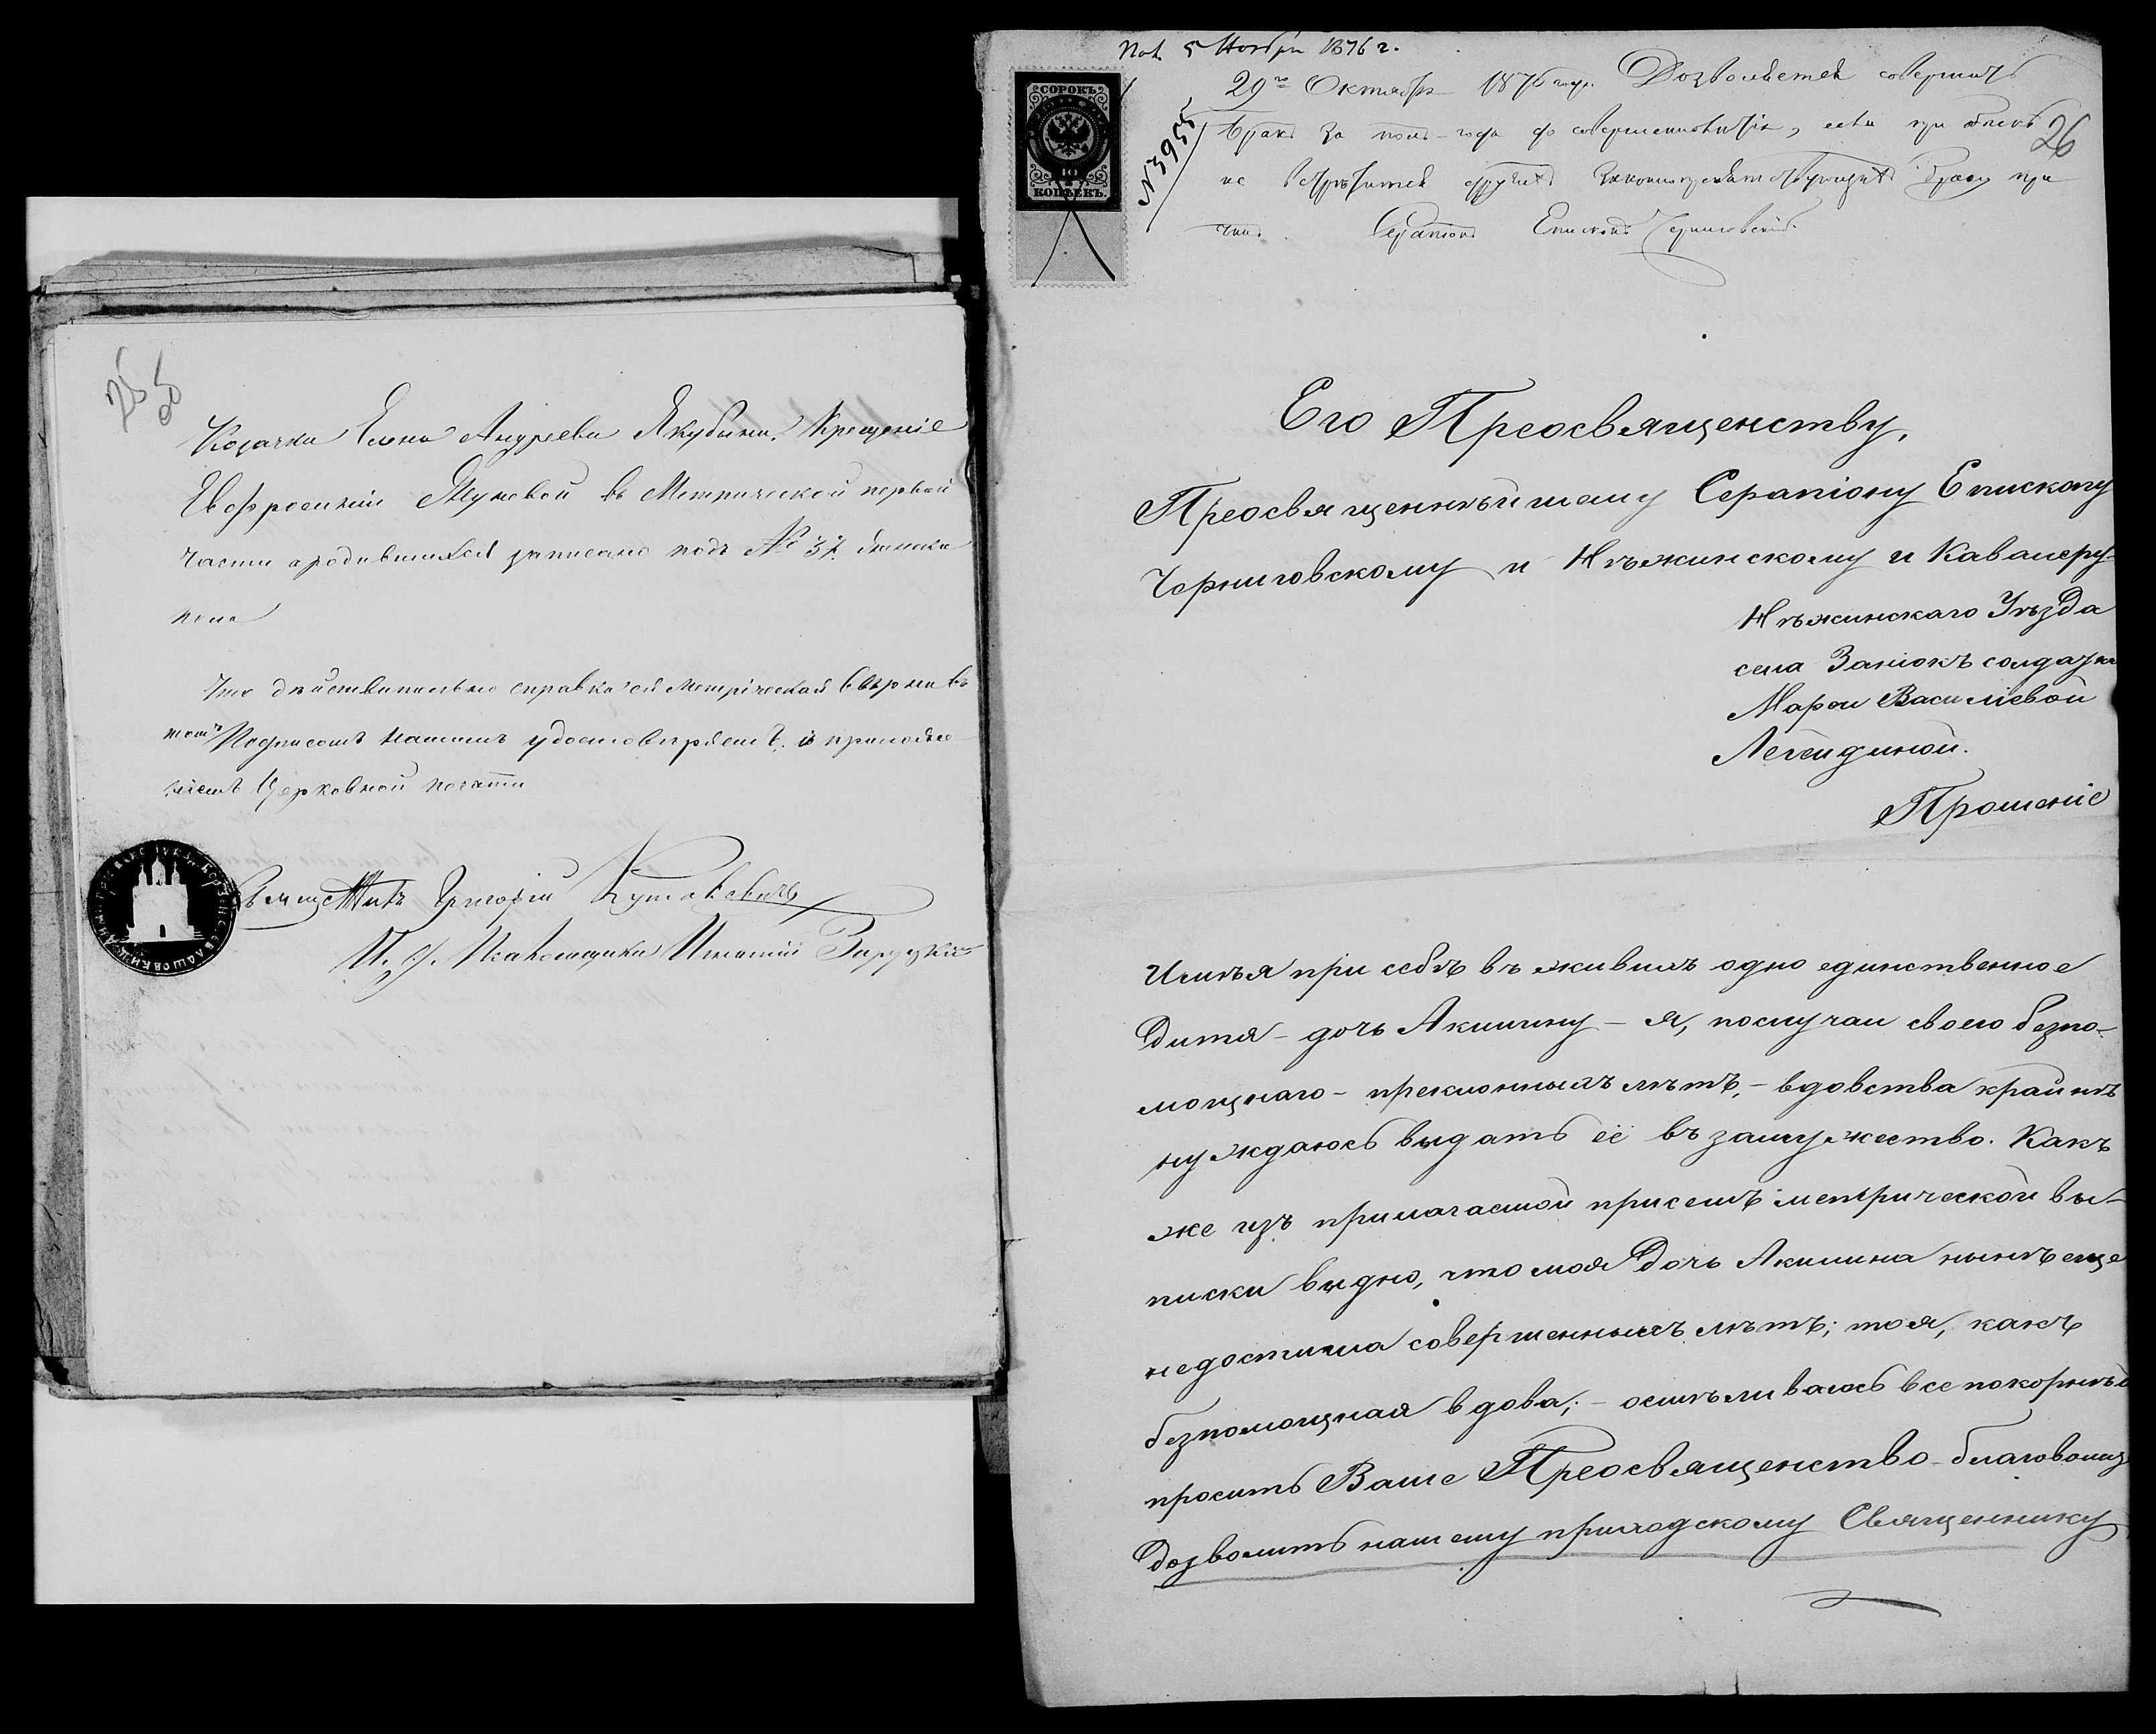 25
об
Козачка Елена Андреева Якубына. Крещеніе
Евфросиніи Муховой въ Метрической первой
части о родившихся записано подъ № 37. женска
пола
Что действительно справка сей Метрической вѣрна въ
томъ Подписомъ нашимъ удостовѣряемъ, и приложе
ніемъ Церковной печати
Священникъ Григорій
И. Д. Псаломщика Игнатій
Пол. 5 Ноября 1876 г.
СОРОКЪ
40
КОПѢЕКЪ.
№ 3955
26
29го Октября 1876 года. Дозволяется совершить
бракъ за полъ-года до совершеннолѣтія, если при обыскѣ
не встрѣтится другихъ законопрепятствующихъ браку при
чинъ. Серапіонъ Епископъ Черниговскій
Его Преосвященству,
Преосвященнѣйшему Серапіону Епископу
Черниговскому и Нѣжинскому и Кавалеру
Нѣжинскаго Уѣзда
села Заньокъ солдатки
Марѳи Василіевой
Легейдиной.
Прошеніе
Имѣя при себѣ въ живыхъ одно единственное
дитя – дочь Акилину – я, послучаи своего безпо-
мощнаго – преклонныхъ лѣтъ, – вдовства крайнѣ
нуждаюсь выдать её въ замужество. Какъ
же изъ прилагаемой присемъ метрической вы-
писки видно, что моя Дочь Акилина нынѣ еще
недостигла совершенныхъ лѣтъ; то я, какъ
безпомощная вдова; – осмѣливаюсь всепокорнѣй
просить Ваше Преосвященство благоволи
дозволить нашему приходскому Священнику